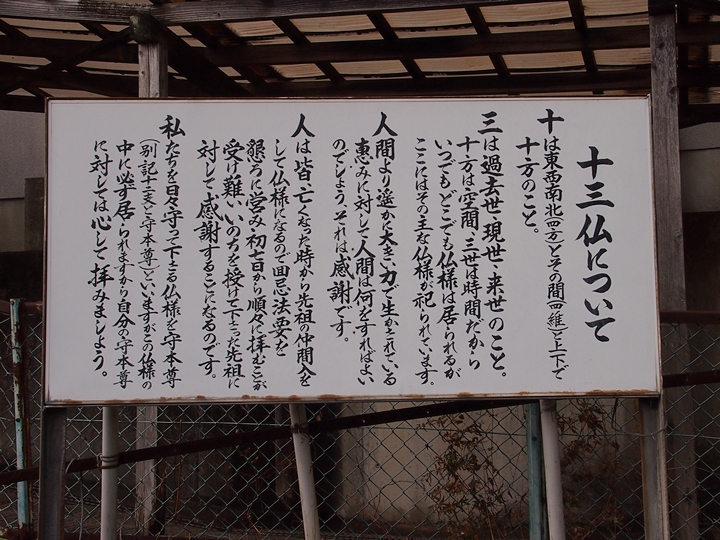 十三仏について
十は東西南北(四方)とその間(四維)と上下で
十方のこと。
三は過去世・現世・来世のこと。
十方は空間、三世は時間だから
いつでもどこでも仏様は居られるが
ここにはその主な仏様が祀られています。
人間より遥かに大きい力で生かされている
恵みに対して人間は何をすればよい
のでしょう。それは感謝です。
人は皆、亡くなった時から先祖の仲間入を
して仏様になるので回忌法要を
懇ろに営み初七日から順々に拝むことが
受け難いいのちを授けて下さった先祖に
対して感謝することになるのです。
私たちを日々守って下さる仏様を守本尊
(別記十二支と守本尊)といいますがこの仏様の
中に必ず居られますから自分の守本尊
に対しては心して拝みましょう。